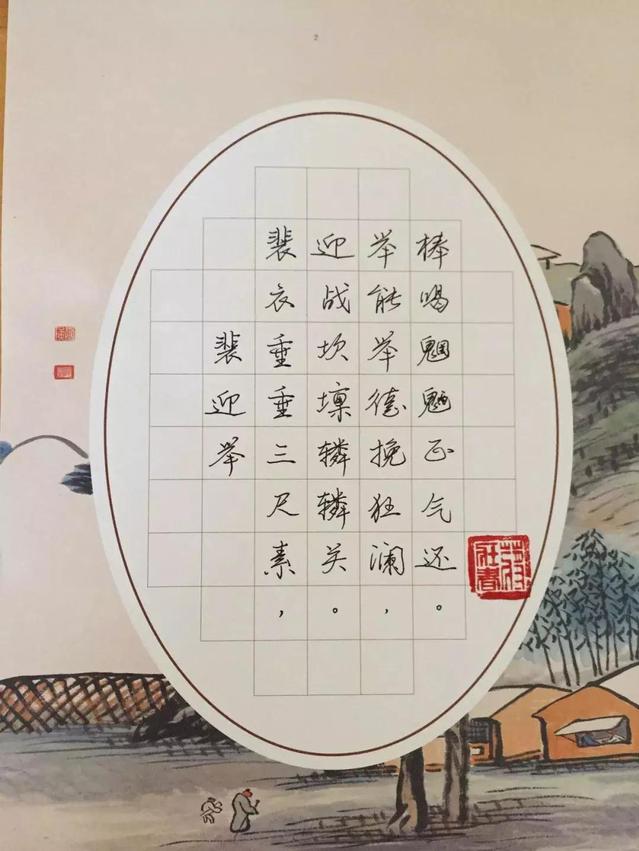 2
裴迎举
裴衣垂垂三尺素，
迎战坎壈辚辚关。
举能举德挽狂澜，
棒喝魍魉正气还。